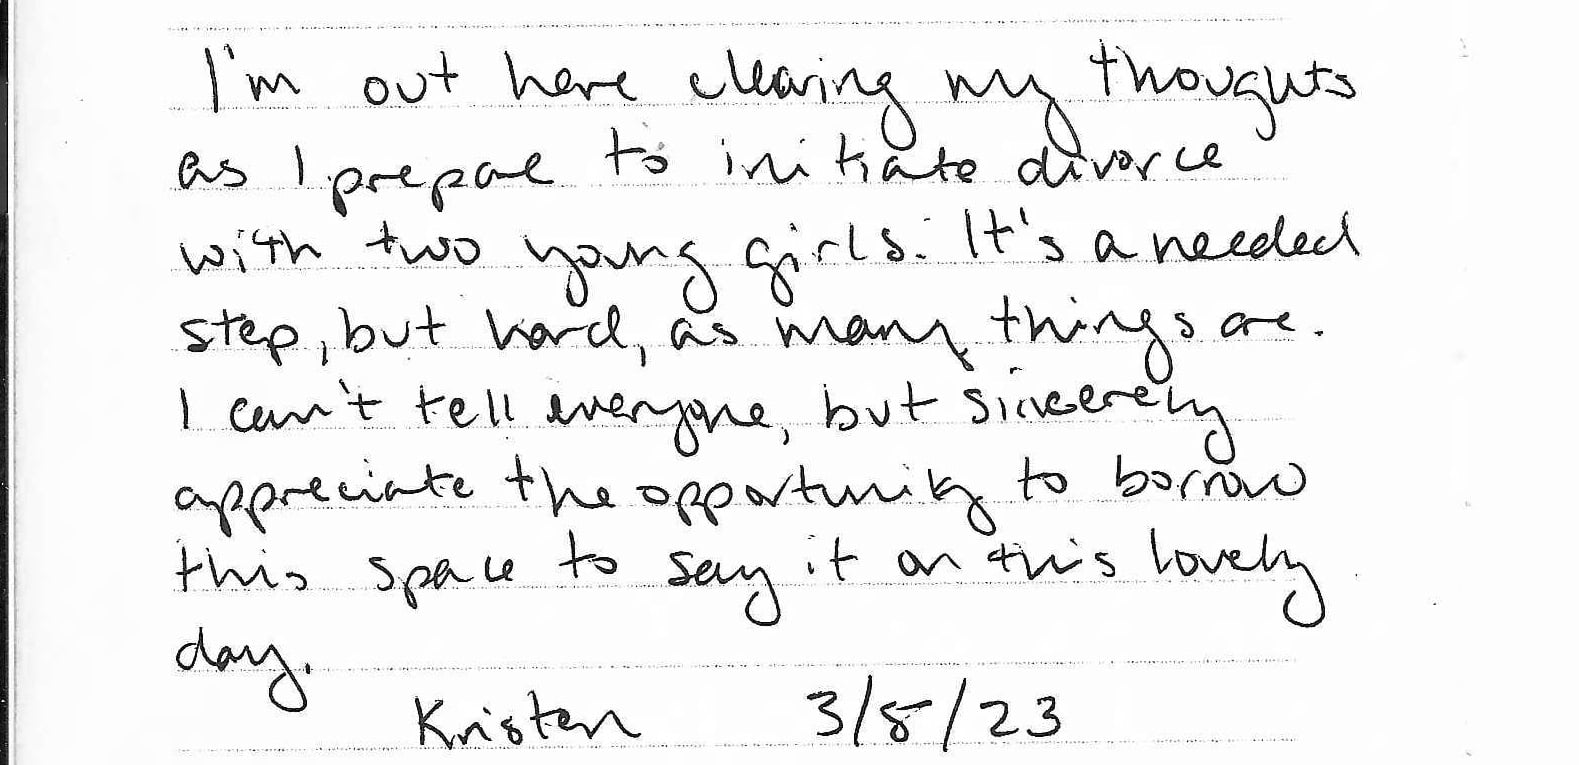 I'm out here clearing my thoughts
as I prepare to initiate divorce
with two young girls. It's a needed
step, but hard, as many things are.
I can't tell everyone, but sincerely
appreciate the opportunity to borrow
this space to say it on this lovely
day.
Kristen 3/8/23